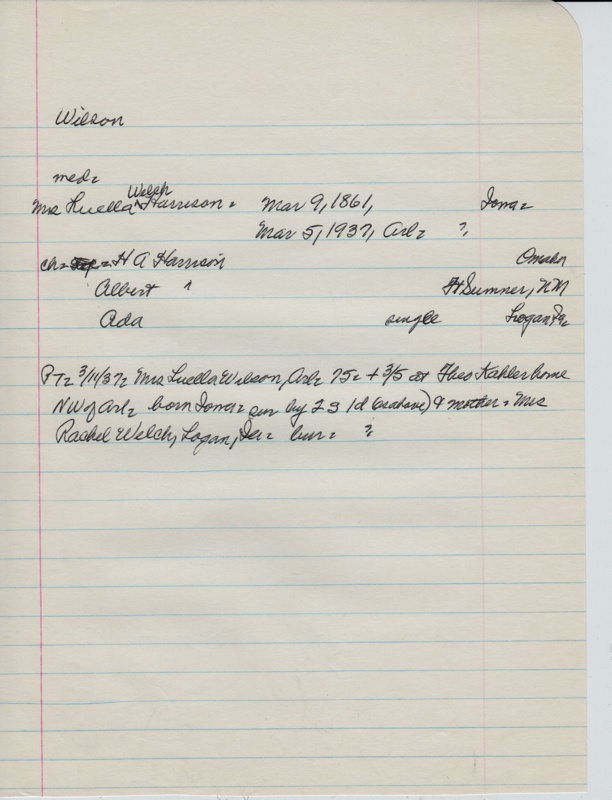 Wilson
med=
Welch
Mrs Luella ^ Harrison = Mar 9, 1861, Iowa=
Mar 5, 1937, Arl= ?
ch= H A Harrison Omaha
Albert " Ft Sumner, NM
Ada single Logan Ia=
PT= 3/11/37= Mrs Luella Wilson, Arl= 75= + 3/5 at Theo Kahler home
NW of Arl= born Iowa= sur by 2 S 1d (as above) & mother = Mrs
Rachel Welch, Logan, Ia= bur= ?